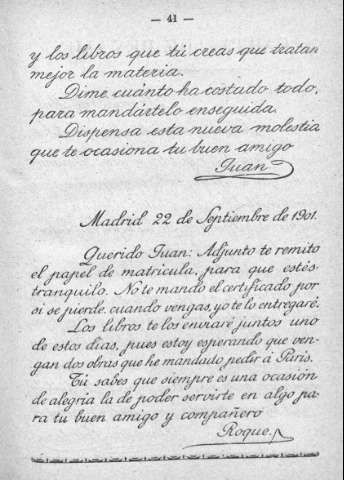 — 41 —
y los libros que tú creas que tratan
mejor la materia.
Dime cuánto ha costado todo,
para mandártelo enseguida.
Dispensa esta nueva molestia
que te ocasiona tu buen amigo
Juan
Madrid 22 de Septiembre de 1901.
Querido Juan: Adjunto te remito
el papel de matrícula, para que estés
tranquilo. No te mando el certificado por
si se pierde, cuando vengas, yo te lo entregaré.
Los libros te los enviaré juntos uno
de estos días, pues estoy esperando que ven-
gan dos obras que he mandado pedir á París.
Tú sabes que siempre es una ocasión
de alegría la de poder servirte en algo pa-
ra tu buen amigo y compañero
Roque.